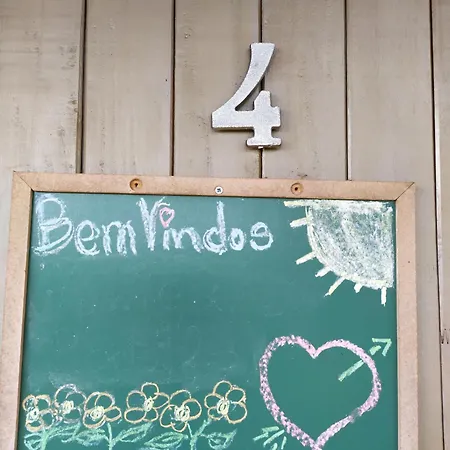 4
BemVindos